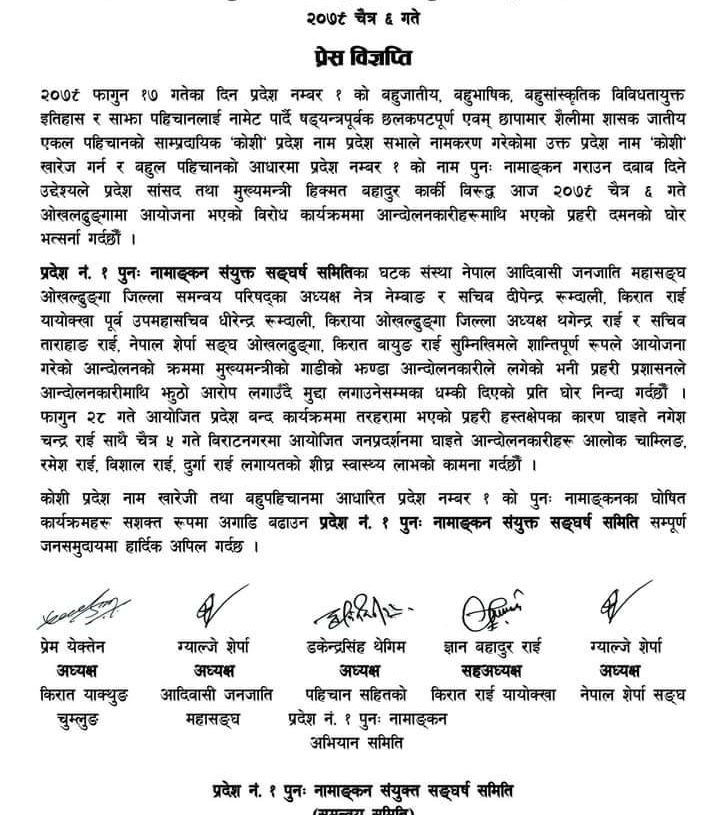 २०७९ चैत्र ६ गते
प्रेस विज्ञप्ति
२०७९ फागुन १७ गतेका दिन प्रदेश नम्बर १ को बहुजातीय, बहुभाषिक, बहुसांस्कृतिक विविधतायुक्त
इतिहास र साझा पहिचानलाई नामेट पार्दै षड्यन्त्रपूर्वक छलकपटपूर्ण एवम् छापामार शैलीमा शासक जातीय
एकल पहिचानको साम्प्रदायिक 'कोशी' प्रदेश नाम प्रदेश सभाले नामकरण गरेकोमा उक्त प्रदेश नाम 'कोशी'
खारेज गर्न र बहुल पहिचानको आधारमा प्रदेश नम्बर १ को नाम पुनः नामाङ्कन गराउन दबाब दिने
उद्देश्यले प्रदेश सांसद तथा मुख्यमन्त्री हिक्मत बहादुर कार्की विरूद्ध आज २०७९ चैत्र ६ गते
ओखलढुङ्गामा आयोजना भएको विरोध कार्यक्रममा आन्दोलनकारीहरूमाथि भएको प्रहरी दमनको घोर
भत्सर्ना गर्दछौँ ।
प्रदेश नं. १ पुनः नामाङ्कन संयुक्त सङ्घर्ष समितिका घटक संस्था नेपाल आदिवासी जनजाति महासङ्घ
ओखलढुङ्गा जिल्ला समन्वय परिषद्का अध्यक्ष नेत्र नेम्बाङ र सचिब दीपेन्द्र रूम्दाली, किरात राई
यायोक्खा पूर्व उपमहासचिव धीरेन्द्र रूम्दाली, किराया ओखलढुङ्गा जिल्ला अध्यक्ष थगेन्द्र राई र सचिव
ताराहाङ राई, नेपाल शेर्पा सङ्घ ओखलढुङ्गा, किरात बायुङ राई सुम्निखिमले शान्तिपूर्ण रूपले आयोजना
गरेको आन्दोलनको क्रममा मुख्यमन्त्रीको गाडीको झण्डा आन्दोलनकारीले लगेको भनी प्रहरी प्रशासनले
आन्दोलनकारीमाथि झुठो आरोप लगाउँदै मुद्दा लगाउनेसम्मका धम्की दिएको प्रति घोर निन्दा गर्दछौँ ।
फागुन २८ गते आयोजित प्रदेश बन्द कार्यक्रममा तरहरामा भएको प्रहरी हस्तक्षेपका कारण घाइते नगेश
चन्द्र राई साथै चैत्र ५ गते विराटनगरमा आयोजित जनप्रदर्शनमा घाइते आन्दोलनकारीहरू आलोक चाम्लिङ,
रमेश राई, विशाल राई, दुर्गा राई लगायतको शीघ्र स्वास्थ्य लाभको कामना गर्दछौँ ।
कोशी प्रदेश नाम खारेजी तथा बहुपहिचानमा आधारित प्रदेश नम्बर १ को पुनः नामाङ्कनका घोषित
कार्यक्रमहरू सशक्त रूपमा अगाडि बढाउन प्रदेश नं. १ पुनः नामाङ्कन संयुक्त सङ्घर्ष समिति सम्पूर्ण
जनसमुदायमा हार्दिक अपिल गर्दछ ।
प्रेम येक्तेन ग्याल्जे शेर्पा डकेन्द्रसिंह थेगिम ज्ञान बहादुर राई ग्याल्जे शेर्पा
अध्यक्ष अध्यक्ष अध्यक्ष सहअध्यक्ष अध्यक्ष
किरात याक्थुङ आदिवासी जनजाति पहिचान सहितको किरात राई यायोक्खा नेपाल शेर्पा सङ्घ
चुम्लुङ महासङ्घ प्रदेश नं. १ पुनः नामाङ्कन
अभियान समिति
प्रदेश नं. १ पुनः नामाङ्कन संयुक्त सङ्घर्ष समिति
(समन्वय समिति)